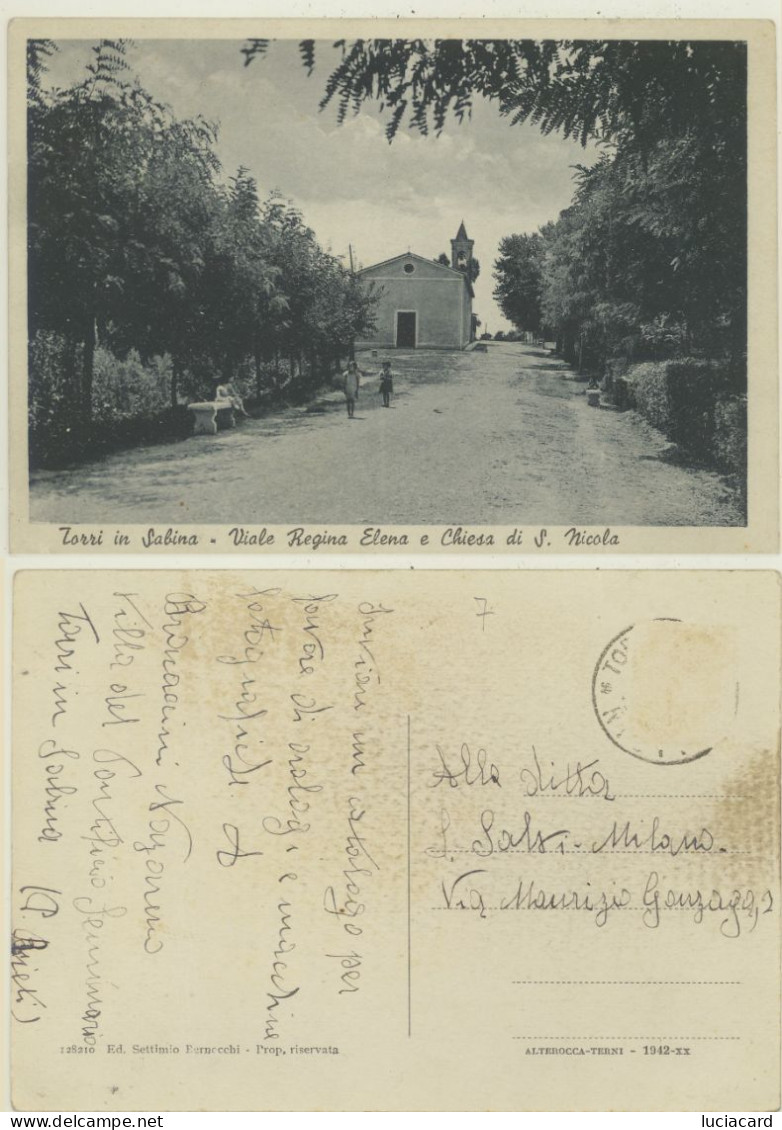 Torri in Sabina - Viale Regina Elena e Chiesa di S. Nicola
7
TO
Inviare un catalogo per
favore di orologi e macchine
fotografiche. A
Brancacini Nazareno
Villa del Pontificio Seminario
Torri in Sabina (P. Rieti)
Alla ditta
Salvi - Milano.
Via Maurizio Gonzaga, 2
128210 Ed. Settimio Bernocchi - Prop. riservata
ALTEROCCA-TERNI - 1942-XX
luciacard